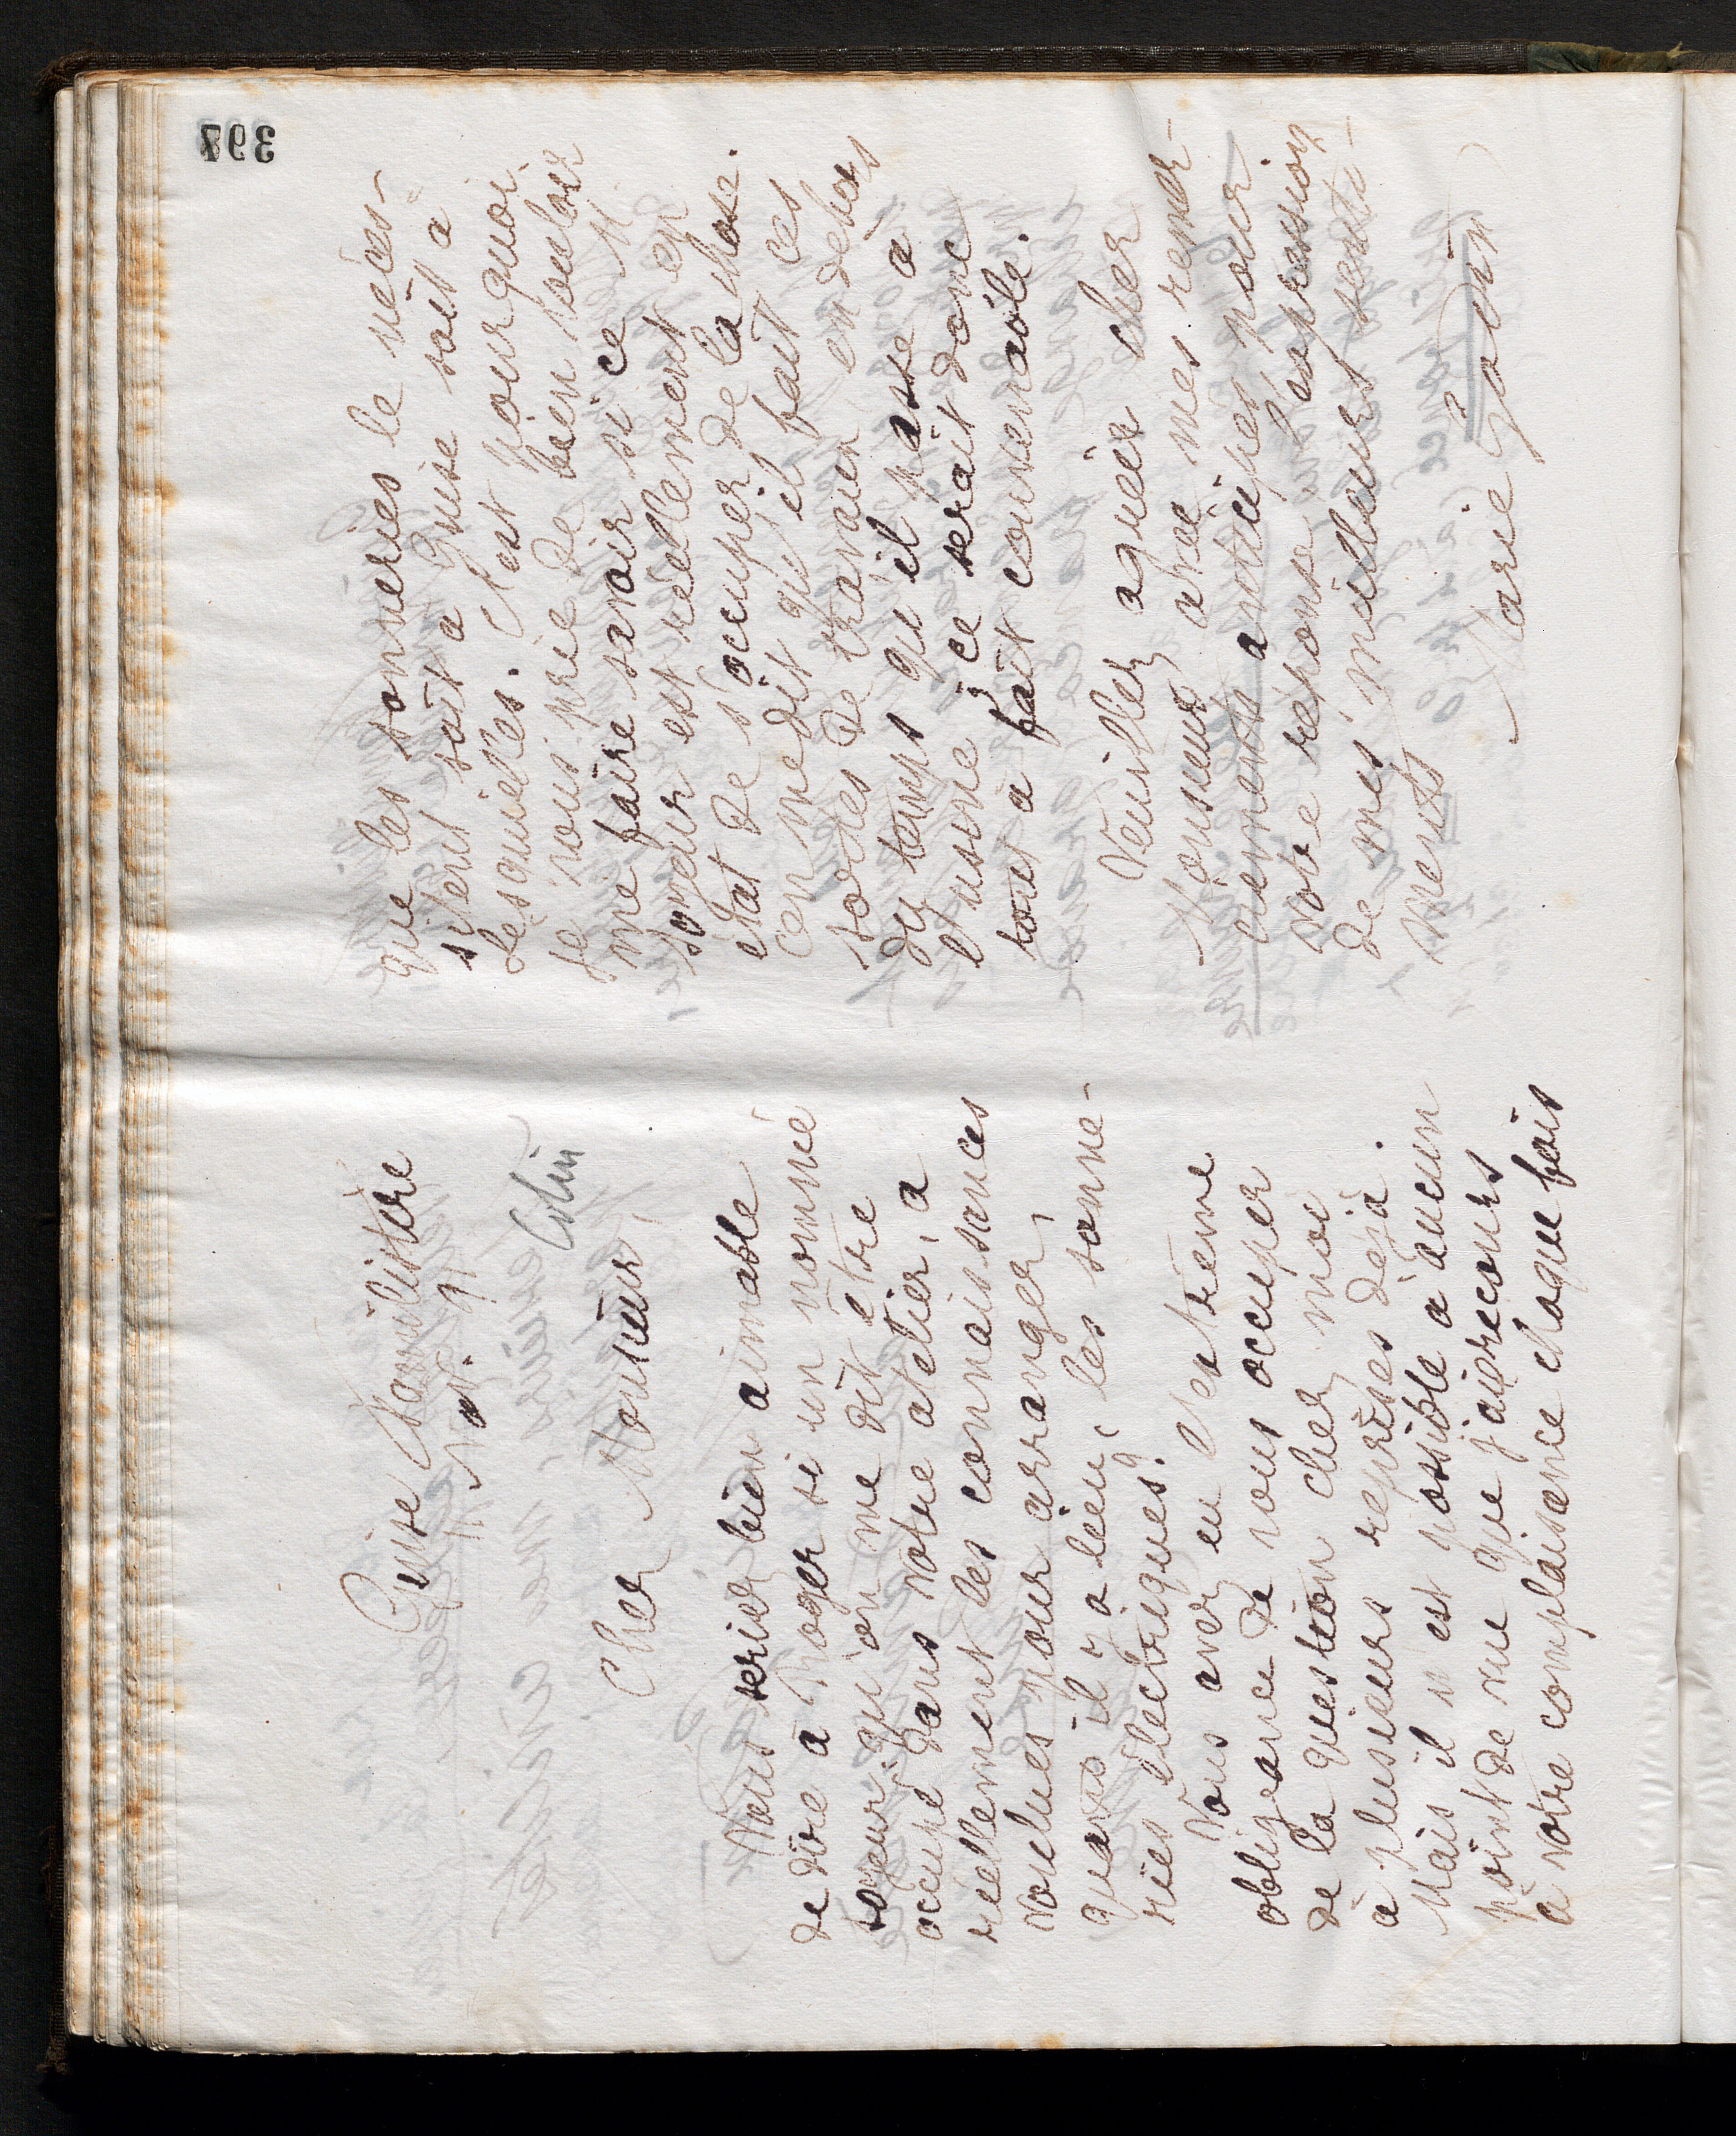 Guise Familistère
Nov. 91
Colin
Cher Monsieur,
Vous seriez bien aimable
de dire à Roger si un nommé
soyeur qu'on me dit être
occupé dans votre atelier, a
réellement les connaissances
voulues pour arranger,
quand il y a lieu, les sonne-
ries électriques.
Vous avez eu l'extrême
obligeance de vous occuper
de la question chez moi
à plusieurs reprises déjà.
Mais il n'est possible à aucun
point de vue que j'aie recours
à votre complaisance chaque fois
que les sonneries le néces-
sitent soit à Guise soit à
Lesquielles. C'est pourquoi
je vous prie de bien vouloir
me faire savoir si ce M
soyeur est réellement en
état de s'occuper de la chose.
On me dit qu'il fait ces
sortes de travaux en dehors
du temps qu'il passe à
l'usine ; ce serait donc
tout à fait convenable.
Veuillez agréer cher
Monsieur avec mes remer-
ciements anticipés pour
votre réponse l'expression
de mes meilleurs senti-
ments
Marie Godin
398